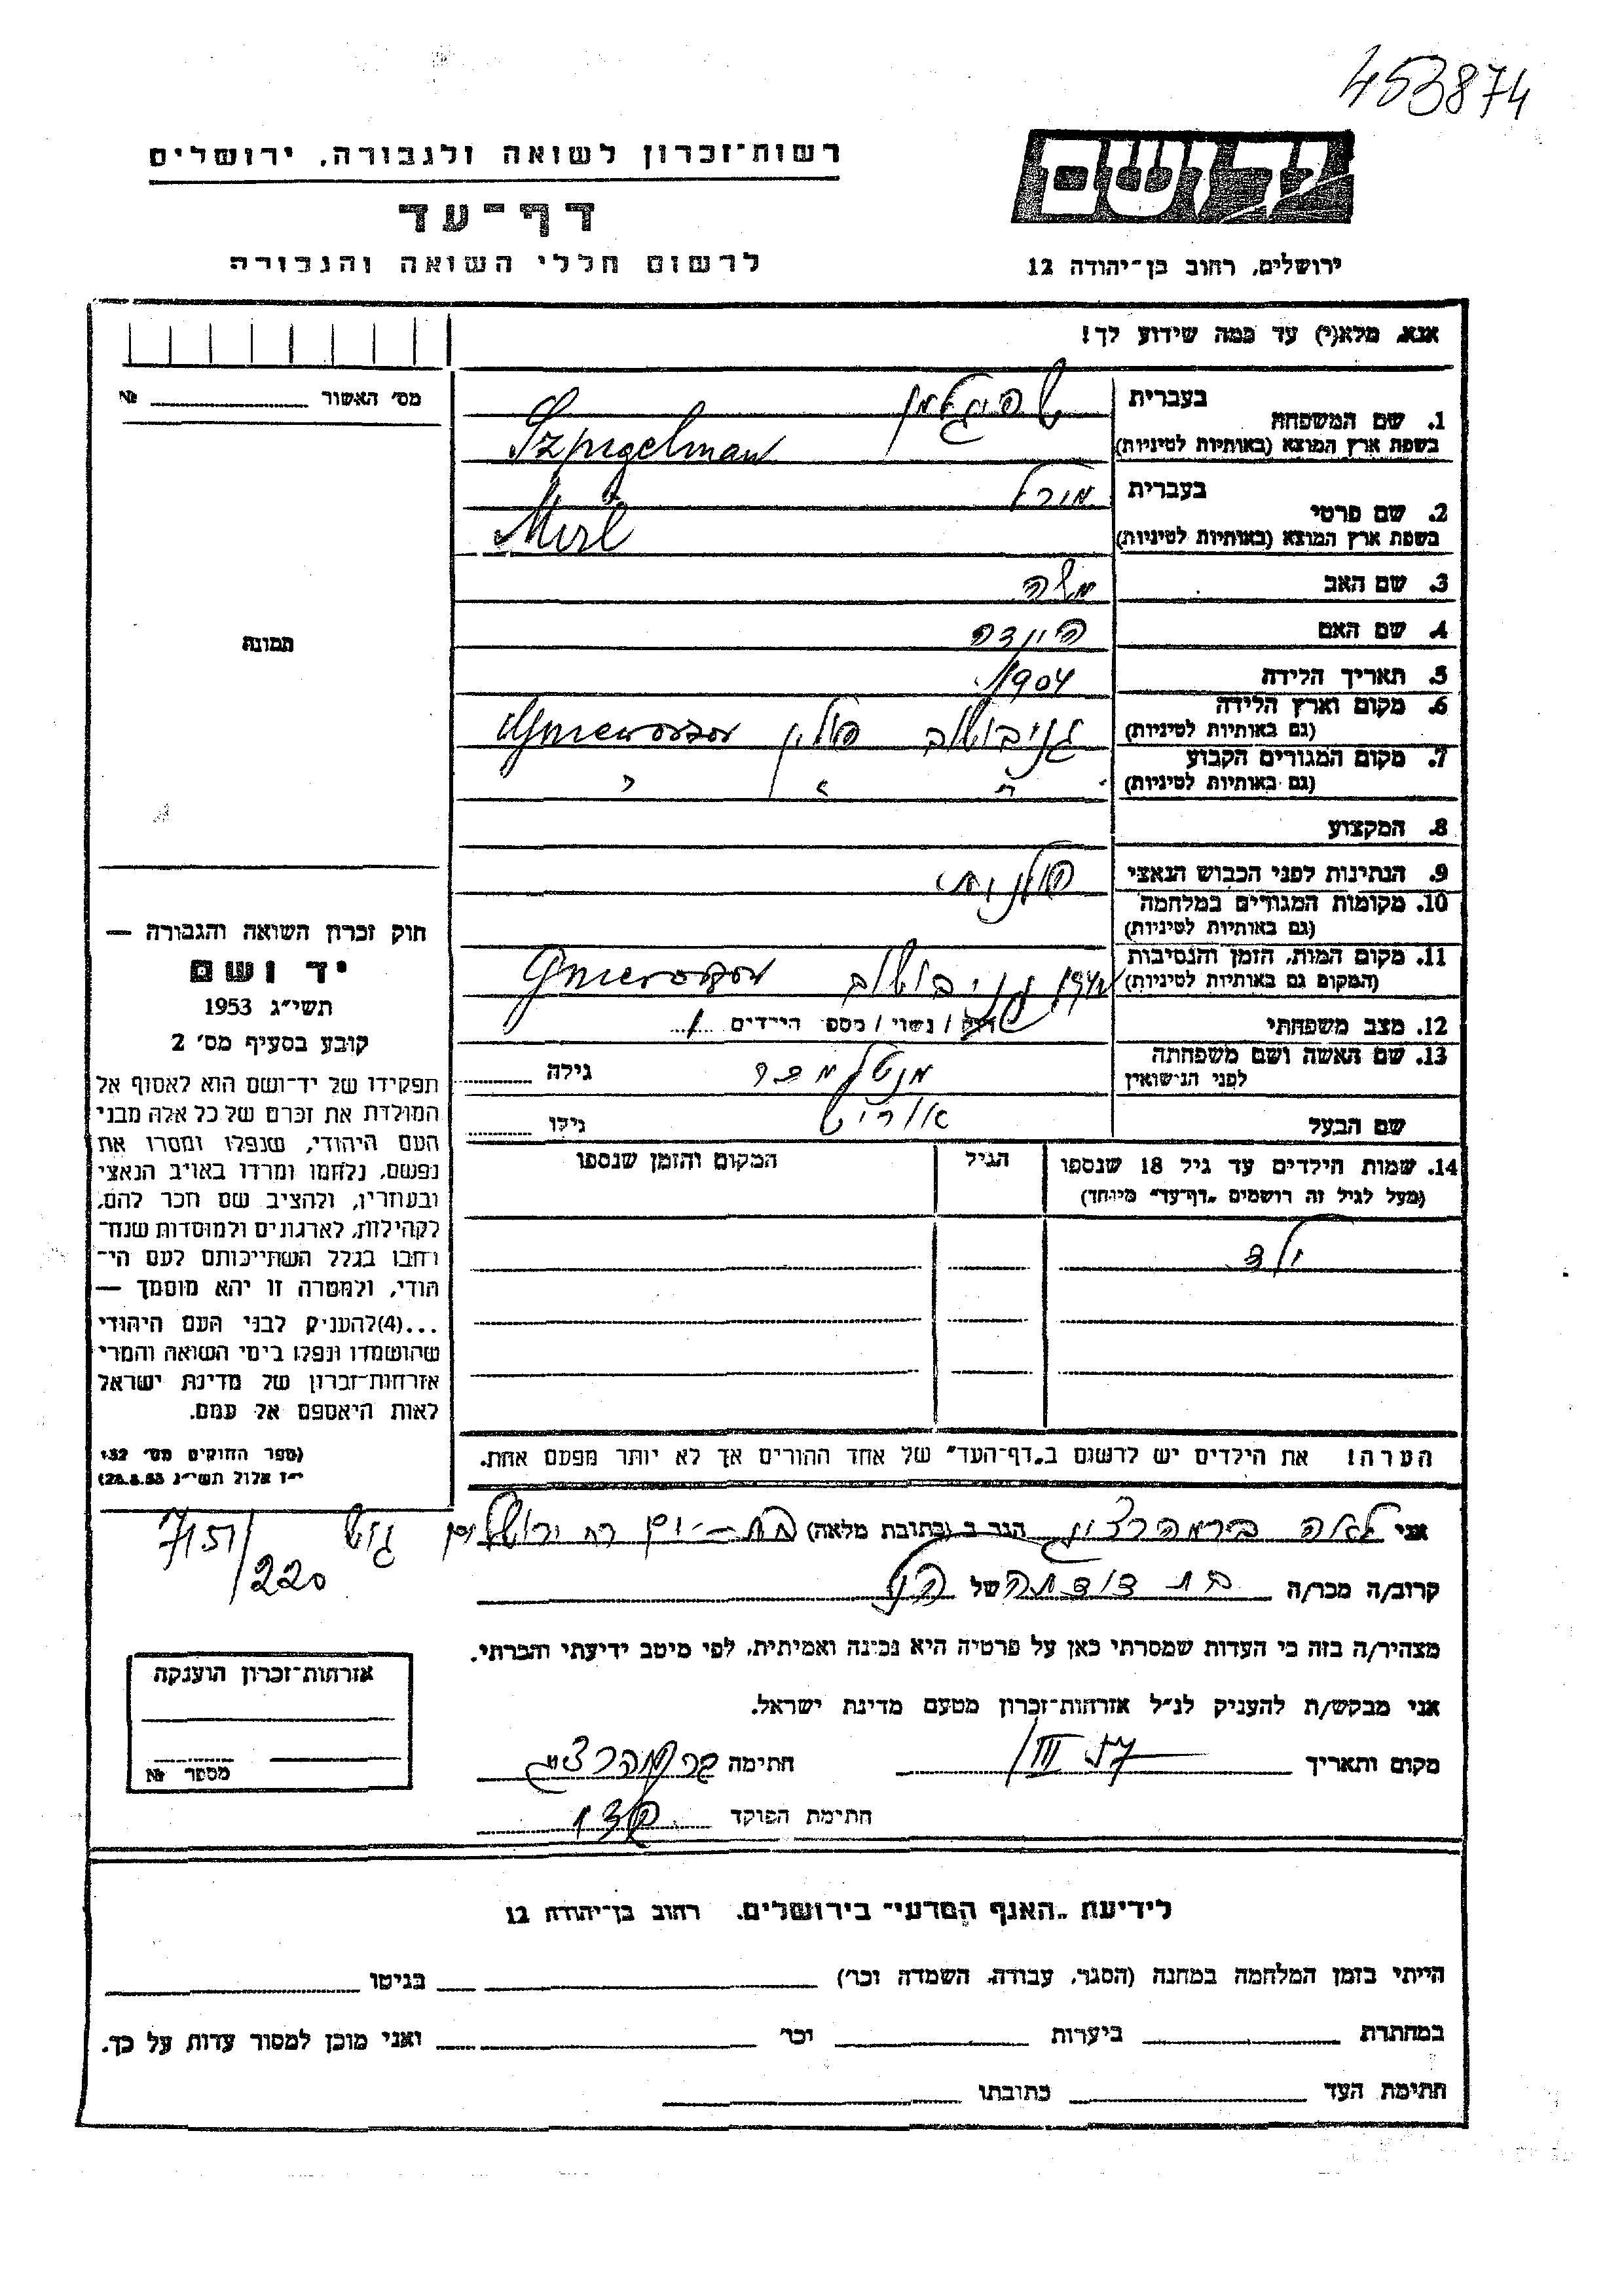 453874
רשות־זכרון לשואה ולגבורה, ירושלים
דף־עד
לרשום חללי השואה והגבורה
ידושם
ירושלים, רחוב בן־יהודה 12
אנא, מלא(י) עד כמה שידוע לך!
מס' האשור № 
1. שם המשפחה
בעברית שפיגלמן
בשפת ארץ המוצא (באותיות לטיניות) Szpigelman
2. שם פרטי
בעברית מירל
בשפת ארץ המוצא (באותיות לטיניות) Mirl
3. שם האב משה
4. שם האם הינדה
5. תאריך הלידה 1904
6. מקום וארץ הלידה
(גם באותיות לטיניות) גניבושוב פולין Gniewoszow
7. מקום המגורים הקבוע
(גם באותיות לטיניות) " " "
8. המקצוע
9. הנתינות לפני הכבוש הנאצי פולנית
10. מקומות המגורים במלחמה
(גם באותיות לטיניות)
11. מקום המות, הזמן והנסיבות
(המקום גם באותיות לטיניות) 1942 גניבושוב Gniewoszow
12. מצב משפחתי רוק / נשוי / מספר הילדים 1
13. שם האשה ושם משפחתה
לפני הנישואין גילה
שם הבעל גילו
תמונה
חוק זכרון השואה והגבורה —
יד ושם
תשי״ג 1953
קובע בסעיף מס' 2
תפקידו של יד־ושם הוא לאסוף אל
המולדת את זכרם של כל אלה מבני
העם היהודי, שנפלו ומסרו את
נפשם, נלחמו ומרדו באויב הנאצי
ובעוזריו, ולהציב שם וזכר להם,
לקהילות, לארגונים ולמוסדות שנח־
רחבו בגלל השתייכותם לעם הי־
הודי, ולמטרה זו יהא מוסמך —
...(4)להעניק לבני העם היהודי
שהושמדו ונפלו בימי השואה והמרי
אזרחות־זכרון של מדינת ישראל
לאות היאספם אל עמם.
(ספר החוקים מס' 132
י״ז אלול תשי״ג 28.8.53)
14. שמות הילדים עד גיל 18 שנספו
(מעל לגיל זה רושמים „דף־עד״ מיוחד)
הגיל
המקום והזמן שנספו
ילד
הערה! את הילדים יש לרשום ב„דף־העד״ של אחד ההורים אך לא יותר מפעם אחת.
אני לאה הגר ב (כתובת מלאה) בת-ים רח ירושלים
7/51/220
קרוב/ה מכר/ה בת דודתה של הנ״ל
מצהיר/ה בזה כי העדות שמסרתי כאן על פרטיה היא נכונה ואמיתית, לפי מיטב ידיעתי והכרתי.
אני מבקש/ת להעניק לנ״ל אזרחות־זכרון מטעם מדינת ישראל.
מקום ותאריך III 57 חתימה
חתימת הפוקד
אזרחות־זכרון הוענקה
מספר №
לידיעת „האגף המדעי״ בירושלים, רחוב בן־יהודה 12
הייתי בזמן המלחמה במחנה (הסגר, עבודה, השמדה וכר') בגיטו
במחתרת ביערות וכר' ואני מוכן למסור עדות על כך.
חתימת העד כתובתו